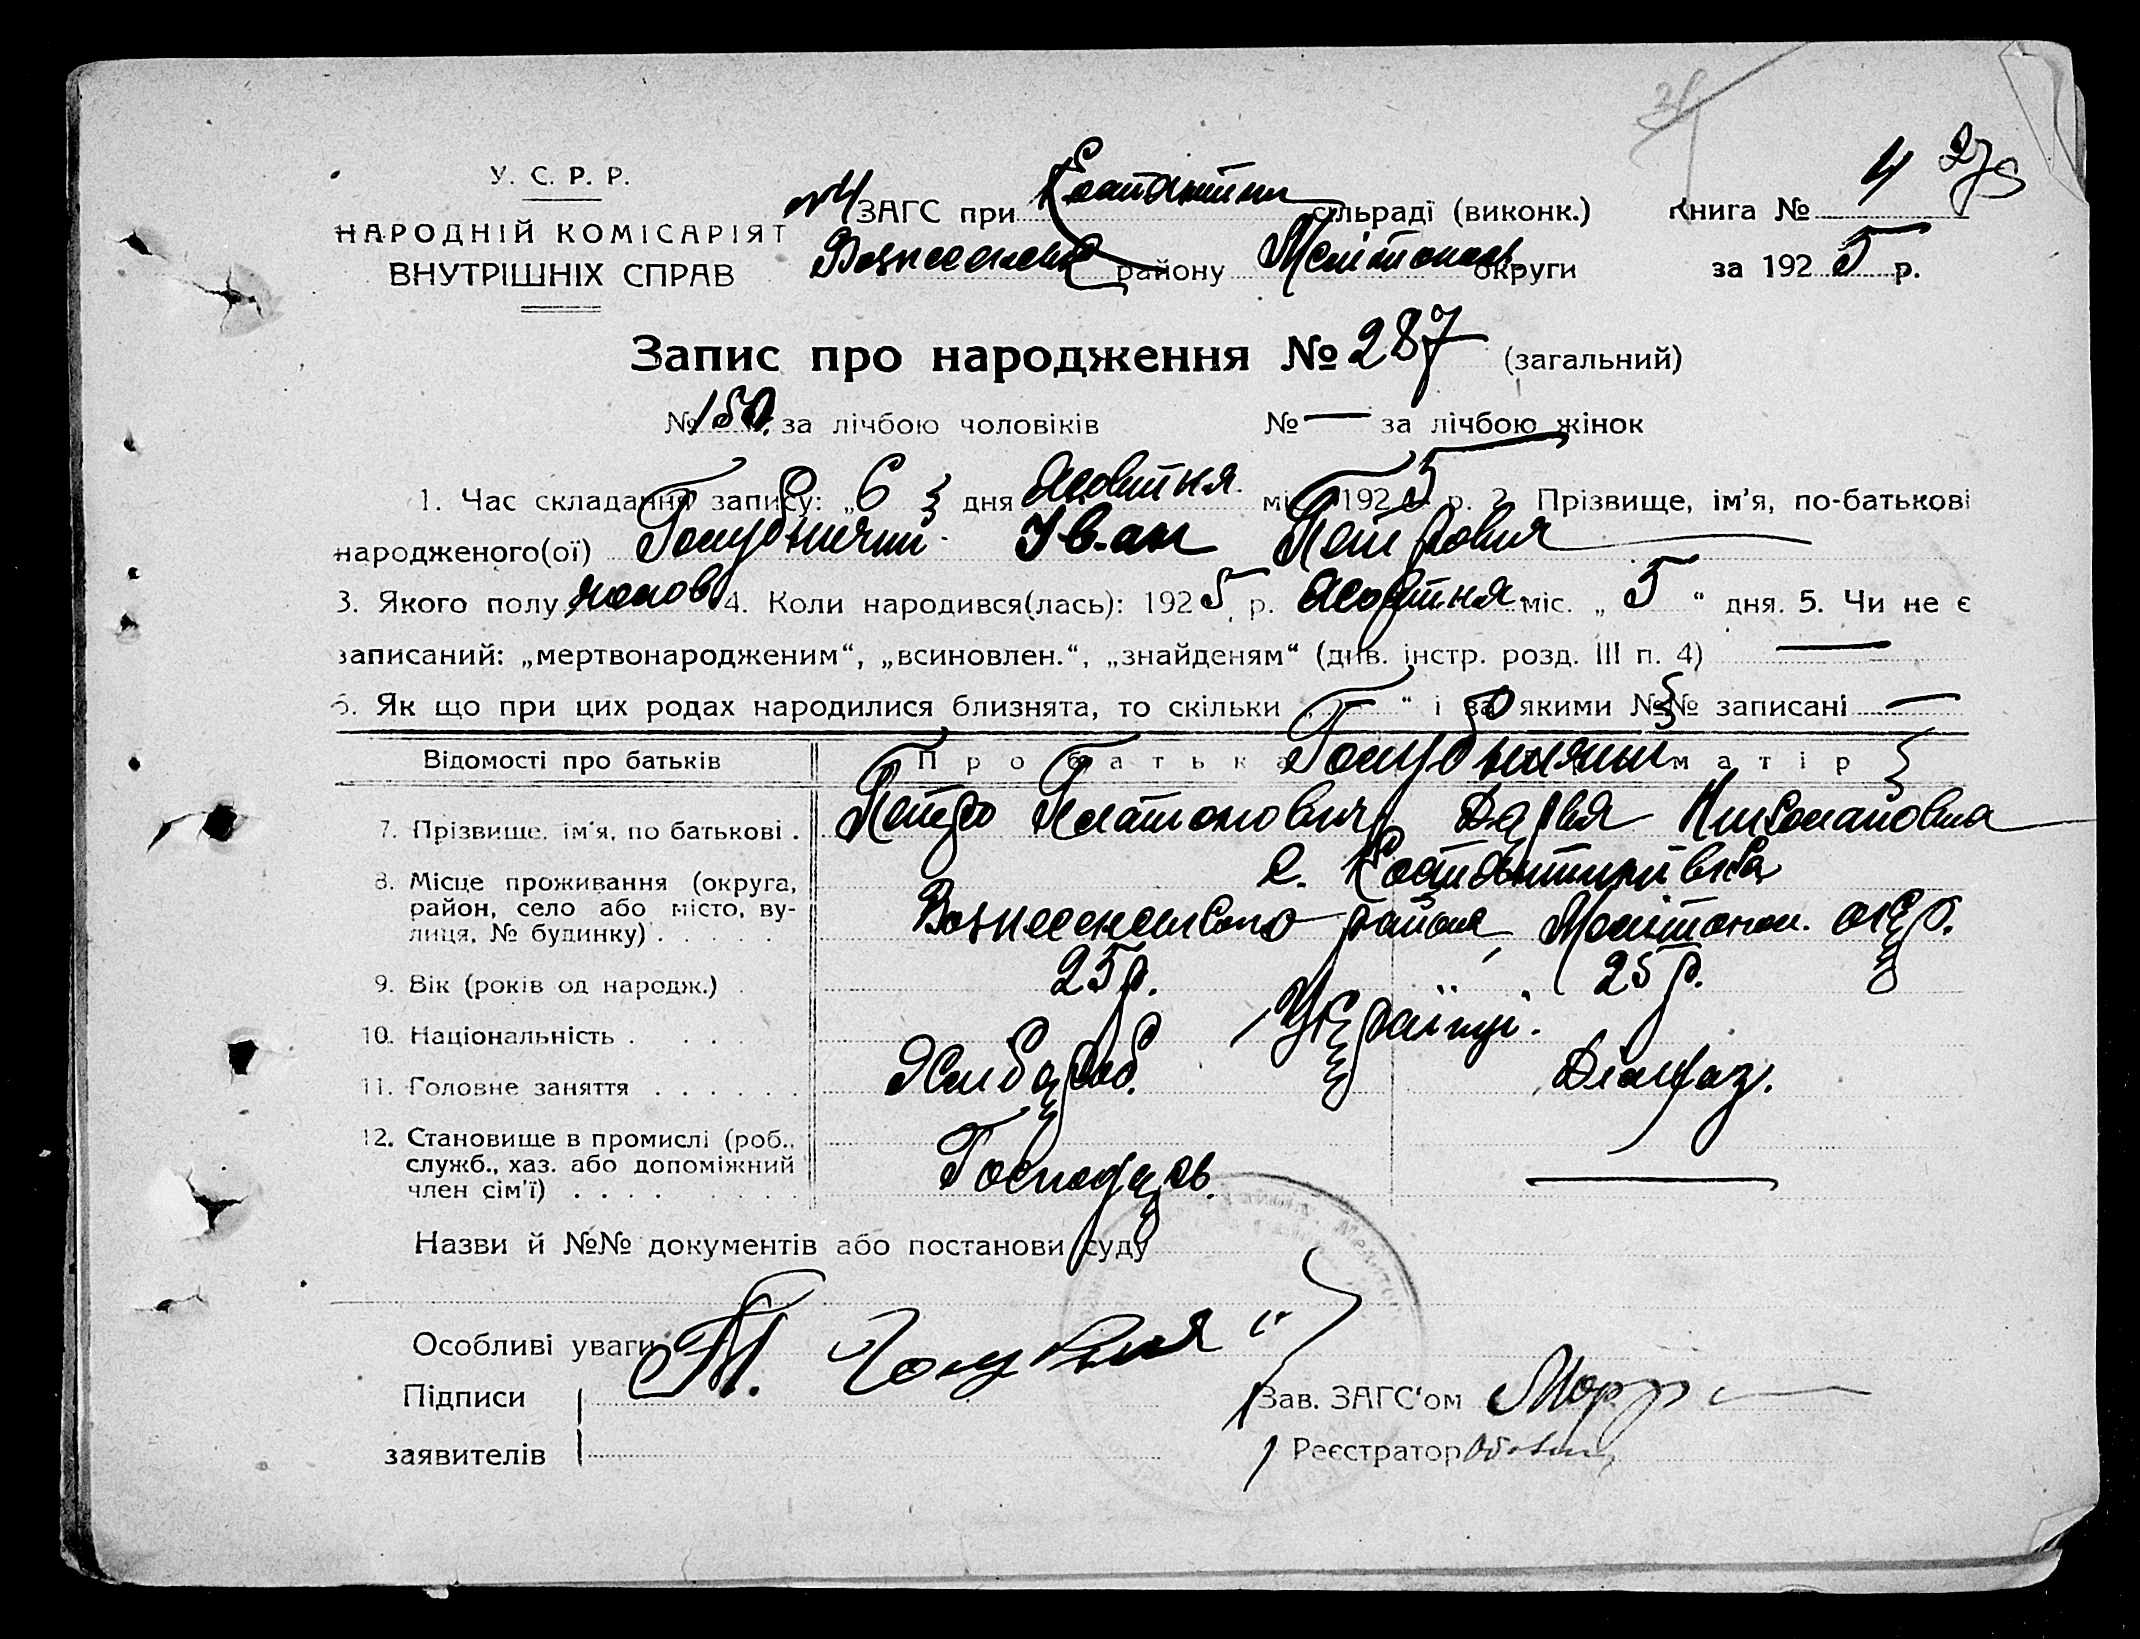 31
У. С. Р. Р.
НАРОДНІЙ КОМІСАРІЯТ
ВНУТРІШНІХ СПРАВ
№4 ЗАГС при Костантин сільраді (виконк.)
Вознесенськ району Мелітопольс. округи
Книга № 4
за 1925 р.
Запис про народження № 287 (загальний)
№ 150. за лічбою чоловіків № — за лічбою жінок
1. Час складання запису: „6" дня Жовтня міс. 1925 р. 2. Прізвище, ім'я, по-батькові
народженого(ої) Голубничий Іван Петрович
3. Якого полу чолов 4. Коли народився(лась): 1925 р. Жовтня міс. „5" дня. 5. Чи не є
записаний: „мертвонародженим", „всиновлен.", „знайденям" (див. інстр. розд. III п. 4) —
6. Як що при цих родах народилися близнята, то скільки „—" і за якими №№ записані —
Відомості про батьків Про батька матір
Голубничий
7. Прізвище, ім'я, по батькові . Петро Платонович Дар'я Миколаівна
8. Місце проживання (округа, с. Костантинівка
район, село або місто, ву- Вознесенського району Мелітопол. окр.
лиця, № будинку) . . . . .
9. Вік (років од народж.) . 25 р. 25 р.
10. Національність . . . . Українці.
11. Головне заняття . . . . . . Хлібароб. Діамаз.
12. Становище в промислі (роб.,
служб., хаз. або допоміжний Господар. —
член сім'ї) . . . . . . . .
Назви й №№ документів або постанови суду
Особливі уваги
Підписи П. Голубнич
заявителів
Зав. ЗАГС'ом
Реєстратор